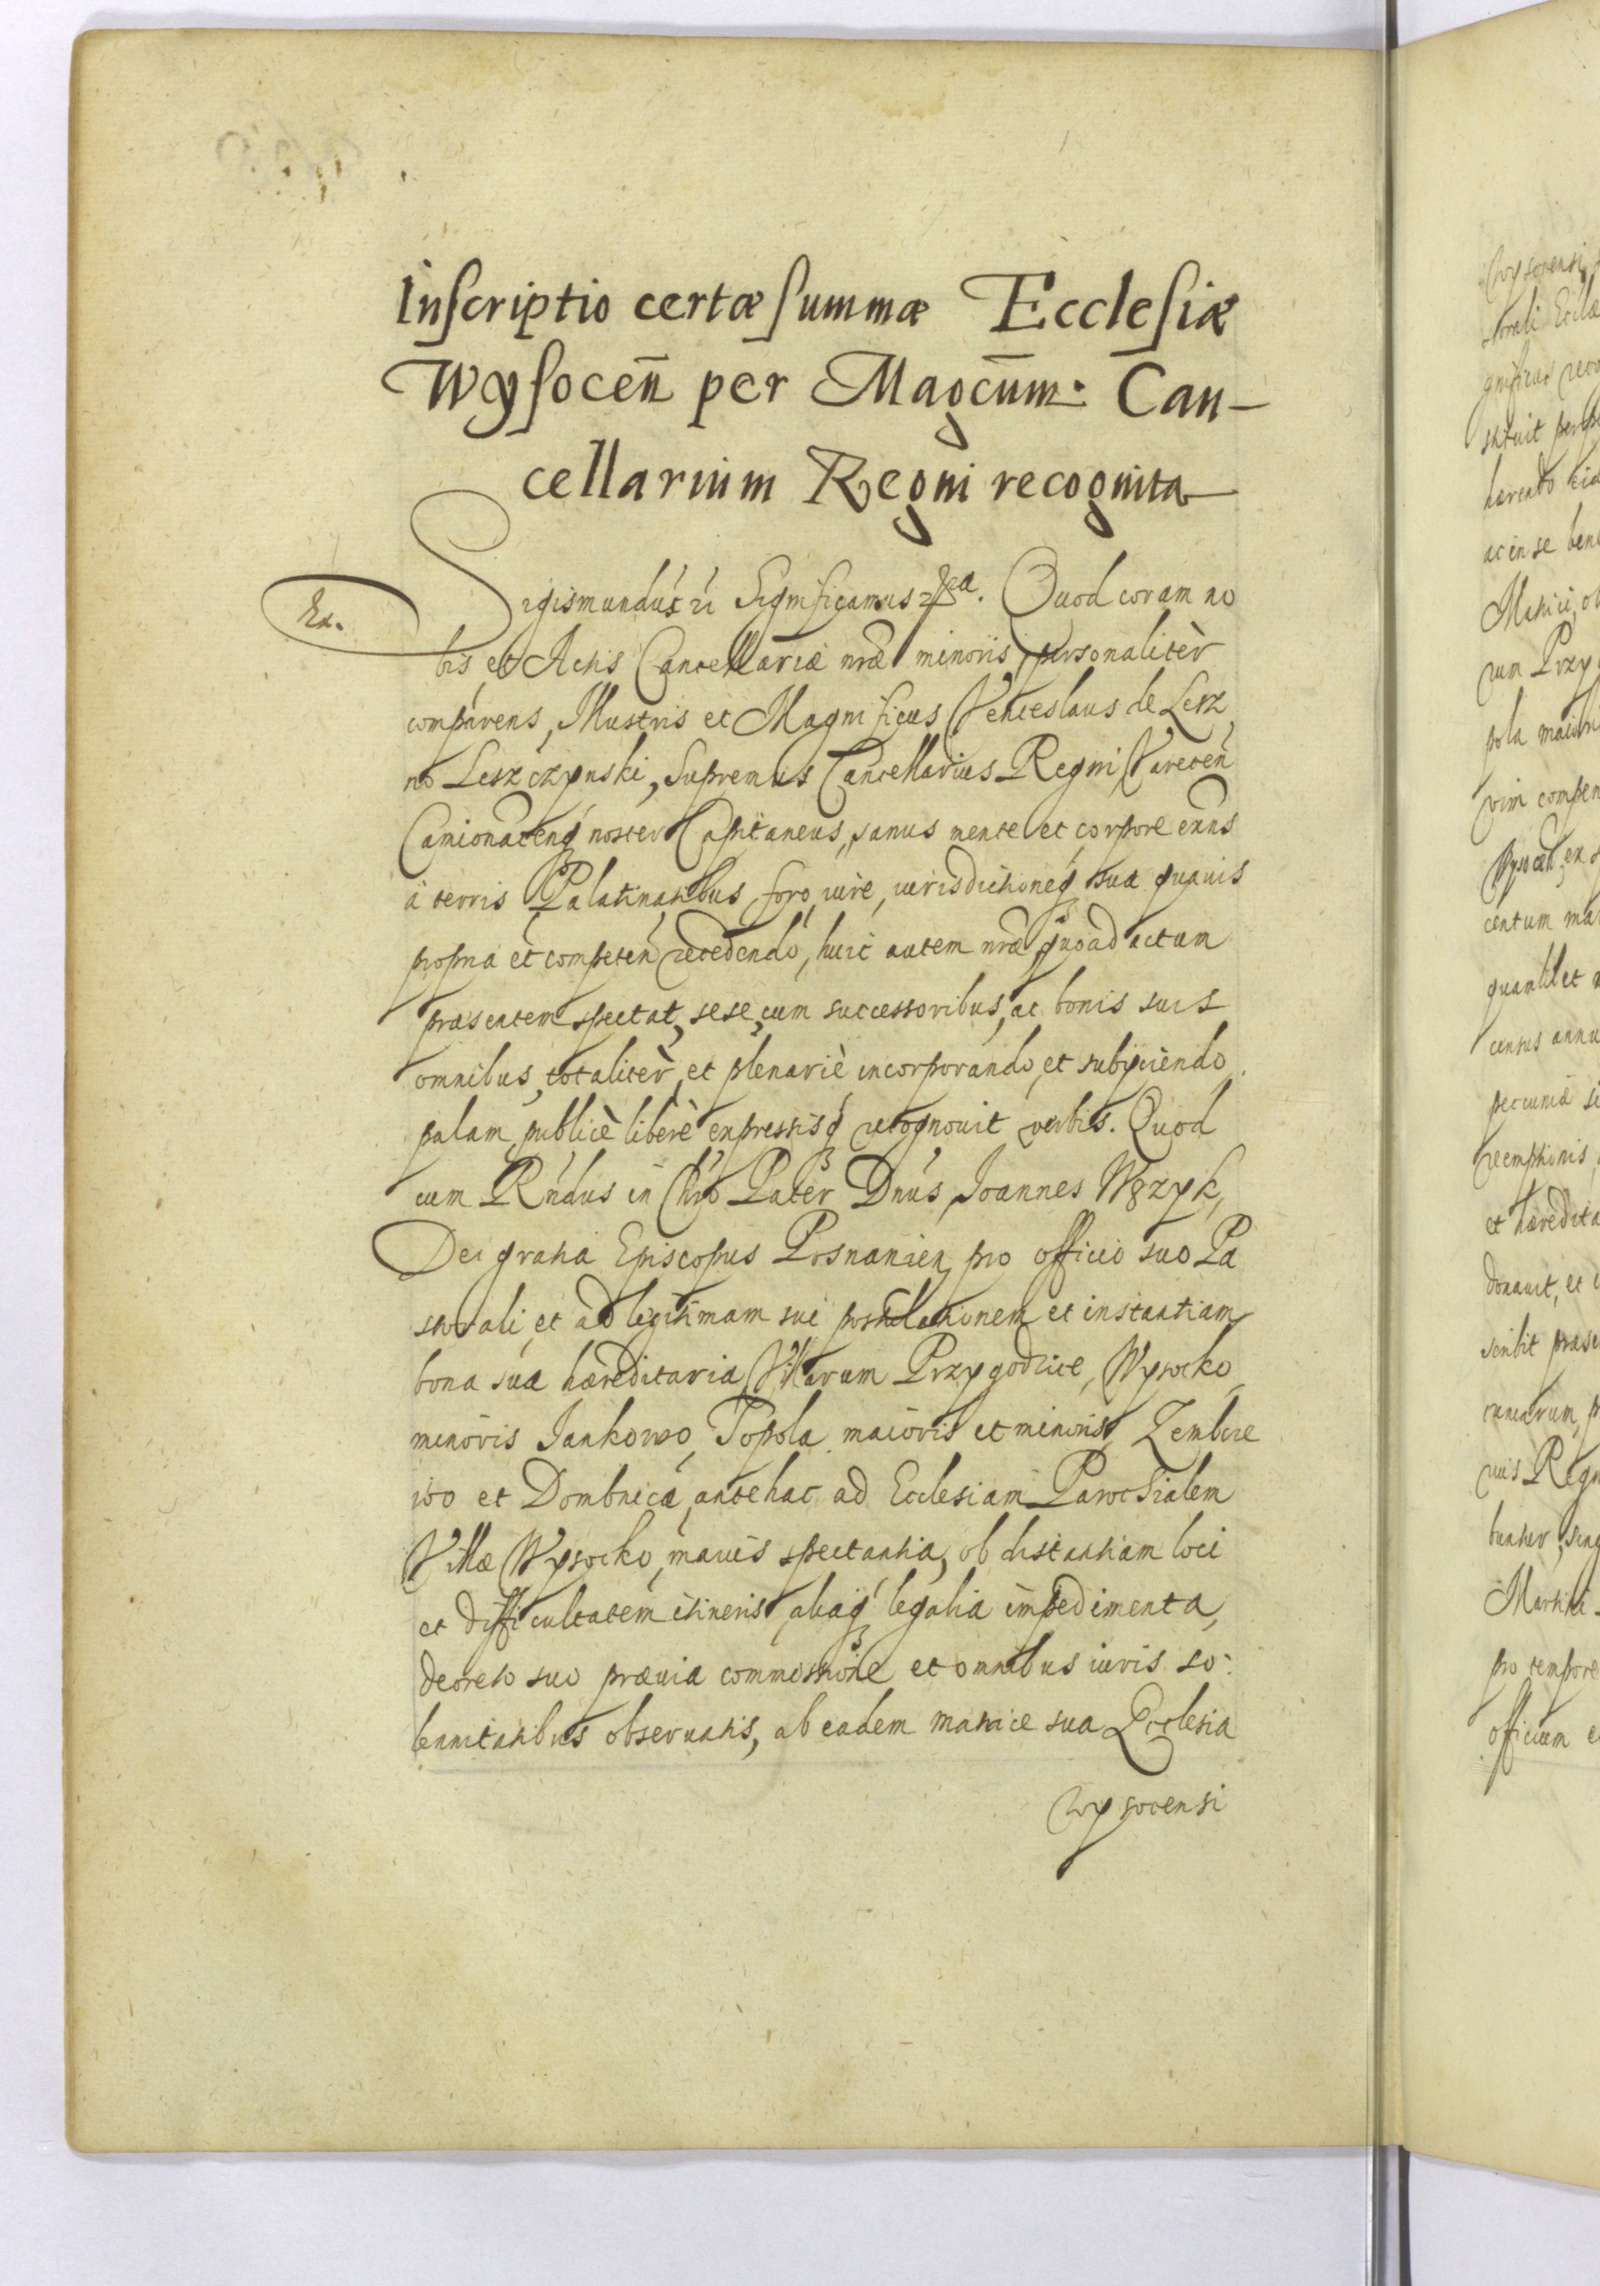 Inscriptio certæ summæ Ecclesiæ
Wysocen̄ per Magcum̄: Can-
cellarium Regni recognita
Ex.
Sigismundus Significamus &ca. Quod coram no
bis et Actis Cancellariæ nræ minoris personalitèr
comparens, Illustris et Magnificus Venceslaus de Lesz
no Leszczynski, Supremus Cancellarius Regni Varecen
Camionacenq noster Capitaneus, sanus mente et corpore exñs
à terris Palatinatibus, foro, iure, iurisdictioneq sua quauis
propria et competen recedendo, huic autem nræ quoad actum
præsentem spectat, sese, cum successoribus, ac bonis suis
omnibus, totalitèr, et plenariè incorporando, et subÿciendo
palam publicè liberè expressisq recognouit verbis. Quod
cum Rndus in Chro Pater Dnus Joannes Wężyk,
Dei gratia Episcopus Posnanien, pro officio suo Pa
storali, et ad legitimam sui postulationem et instantiam
bona sua hæreditaria Villarum Przygodzice, Wysocko
minoris Jankowo, Topola maioris et minoris, Zembce
wo et Dombnica, antehac ad Ecclesiam Parochialem
Villæ Wysocko, maiis spectantia, ob distantiam loci
et difficultatem itineris, aliaq legalia impedimenta,
decreto suo præuia commissione et omnibus iuris so-
lennitatibus obseruatis, ab eadem matrice sua Ecclesia
Wysocensi